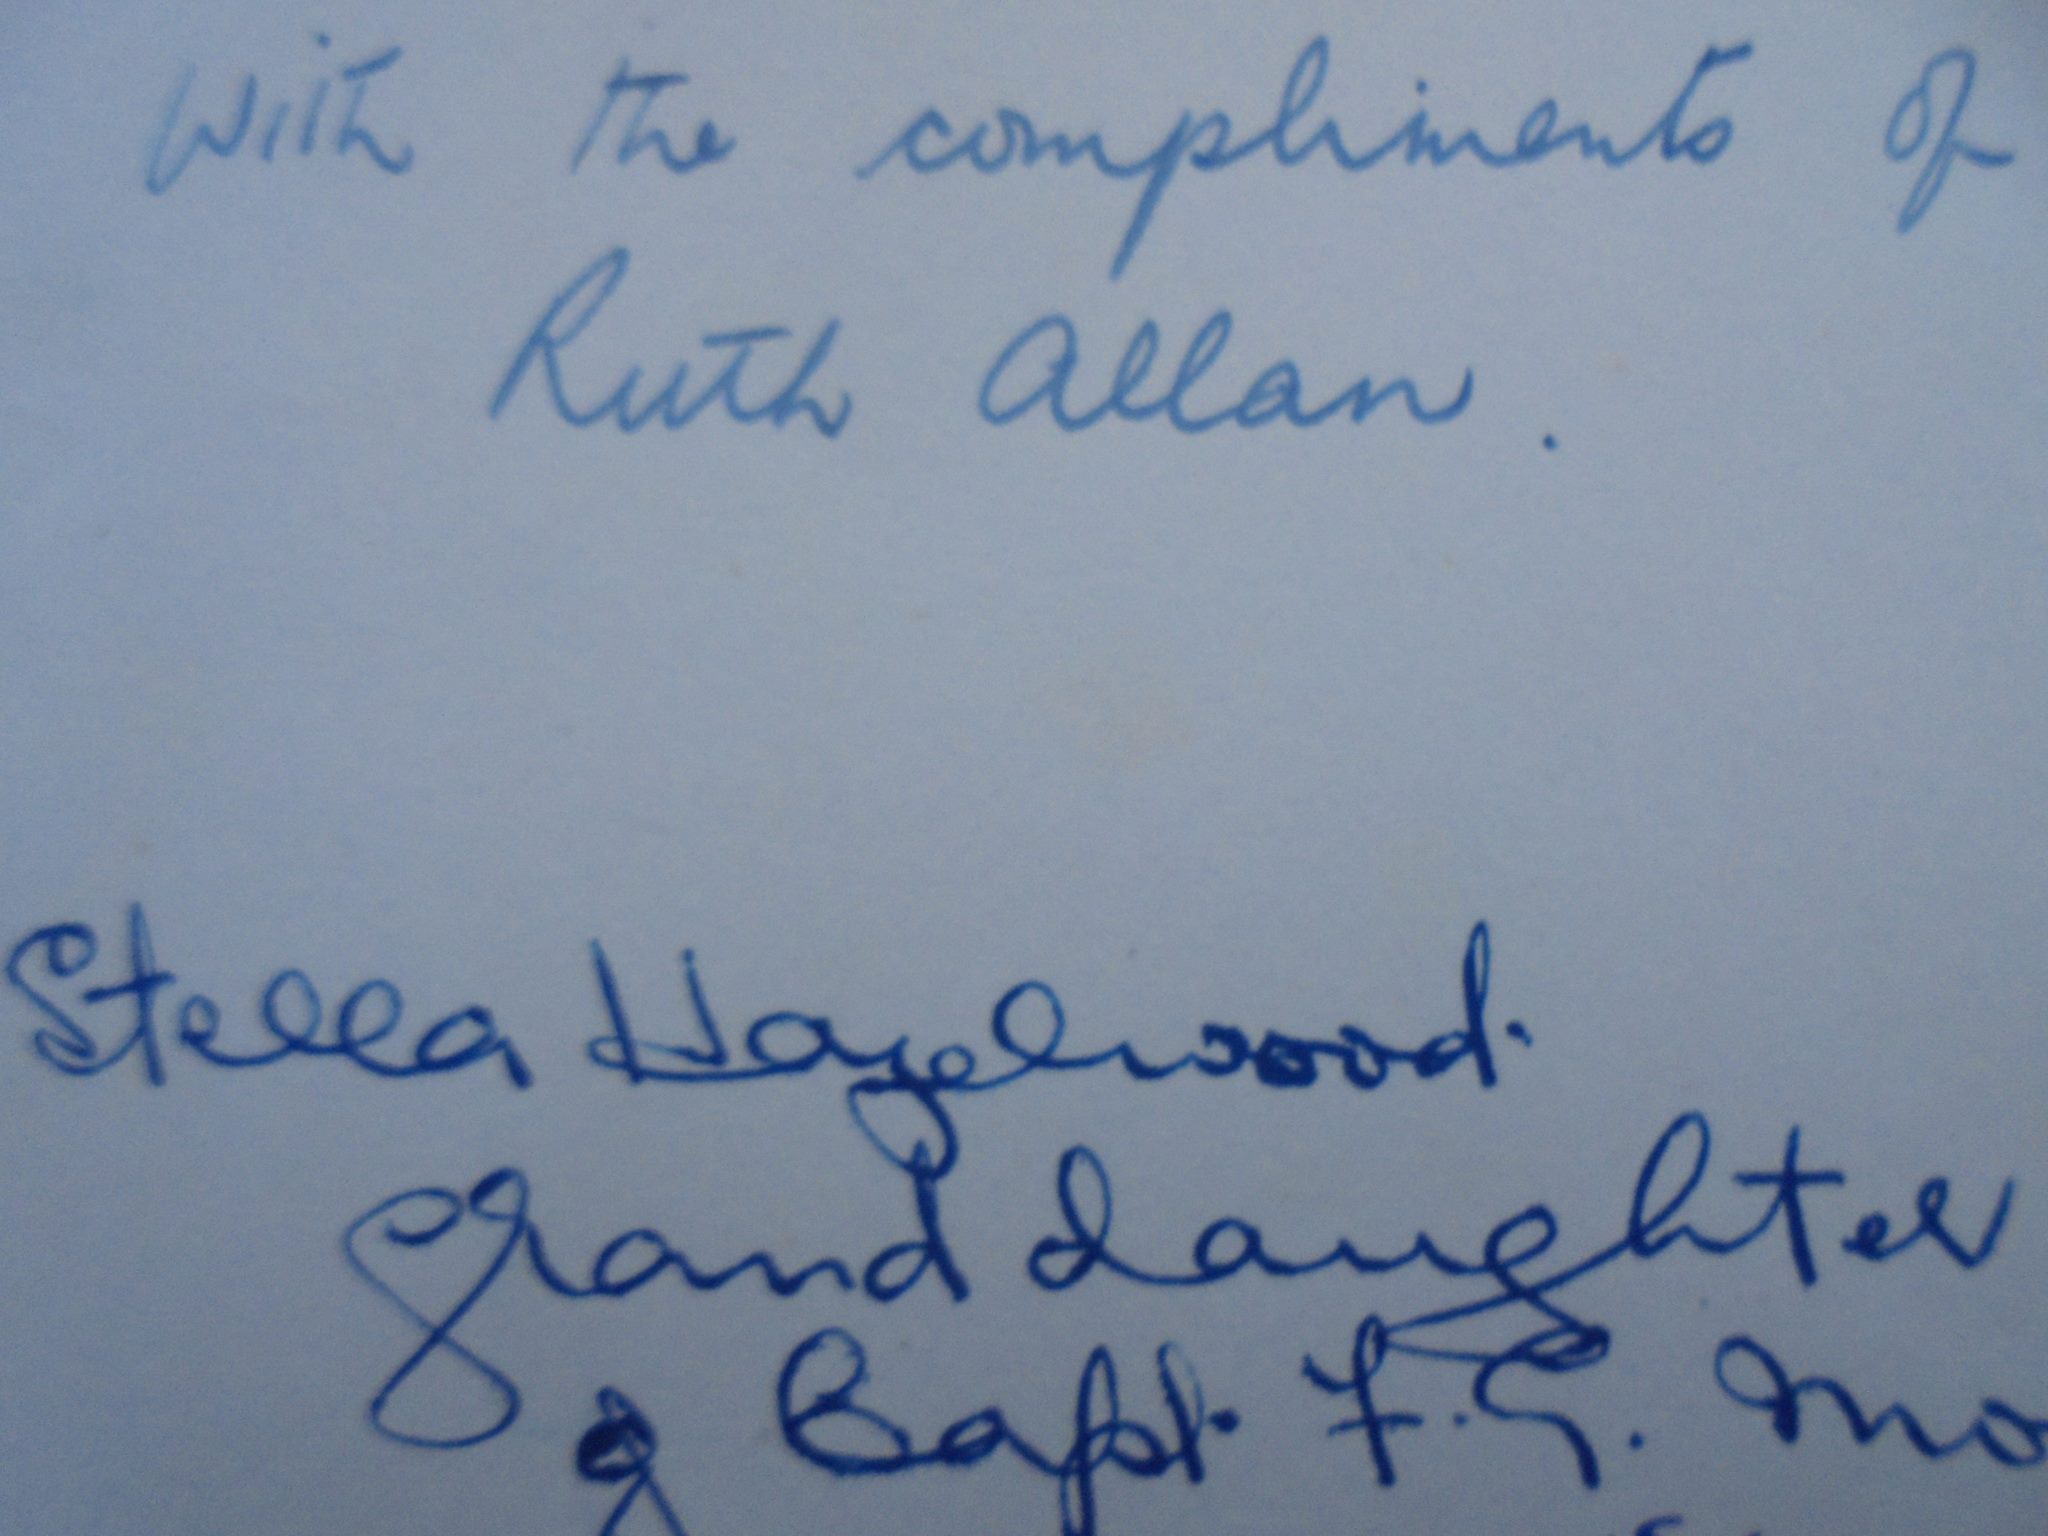 With the compliments of
Ruth Allan.
Stella Hazelwood.
grand daughter
of Capt. F. G. Mo